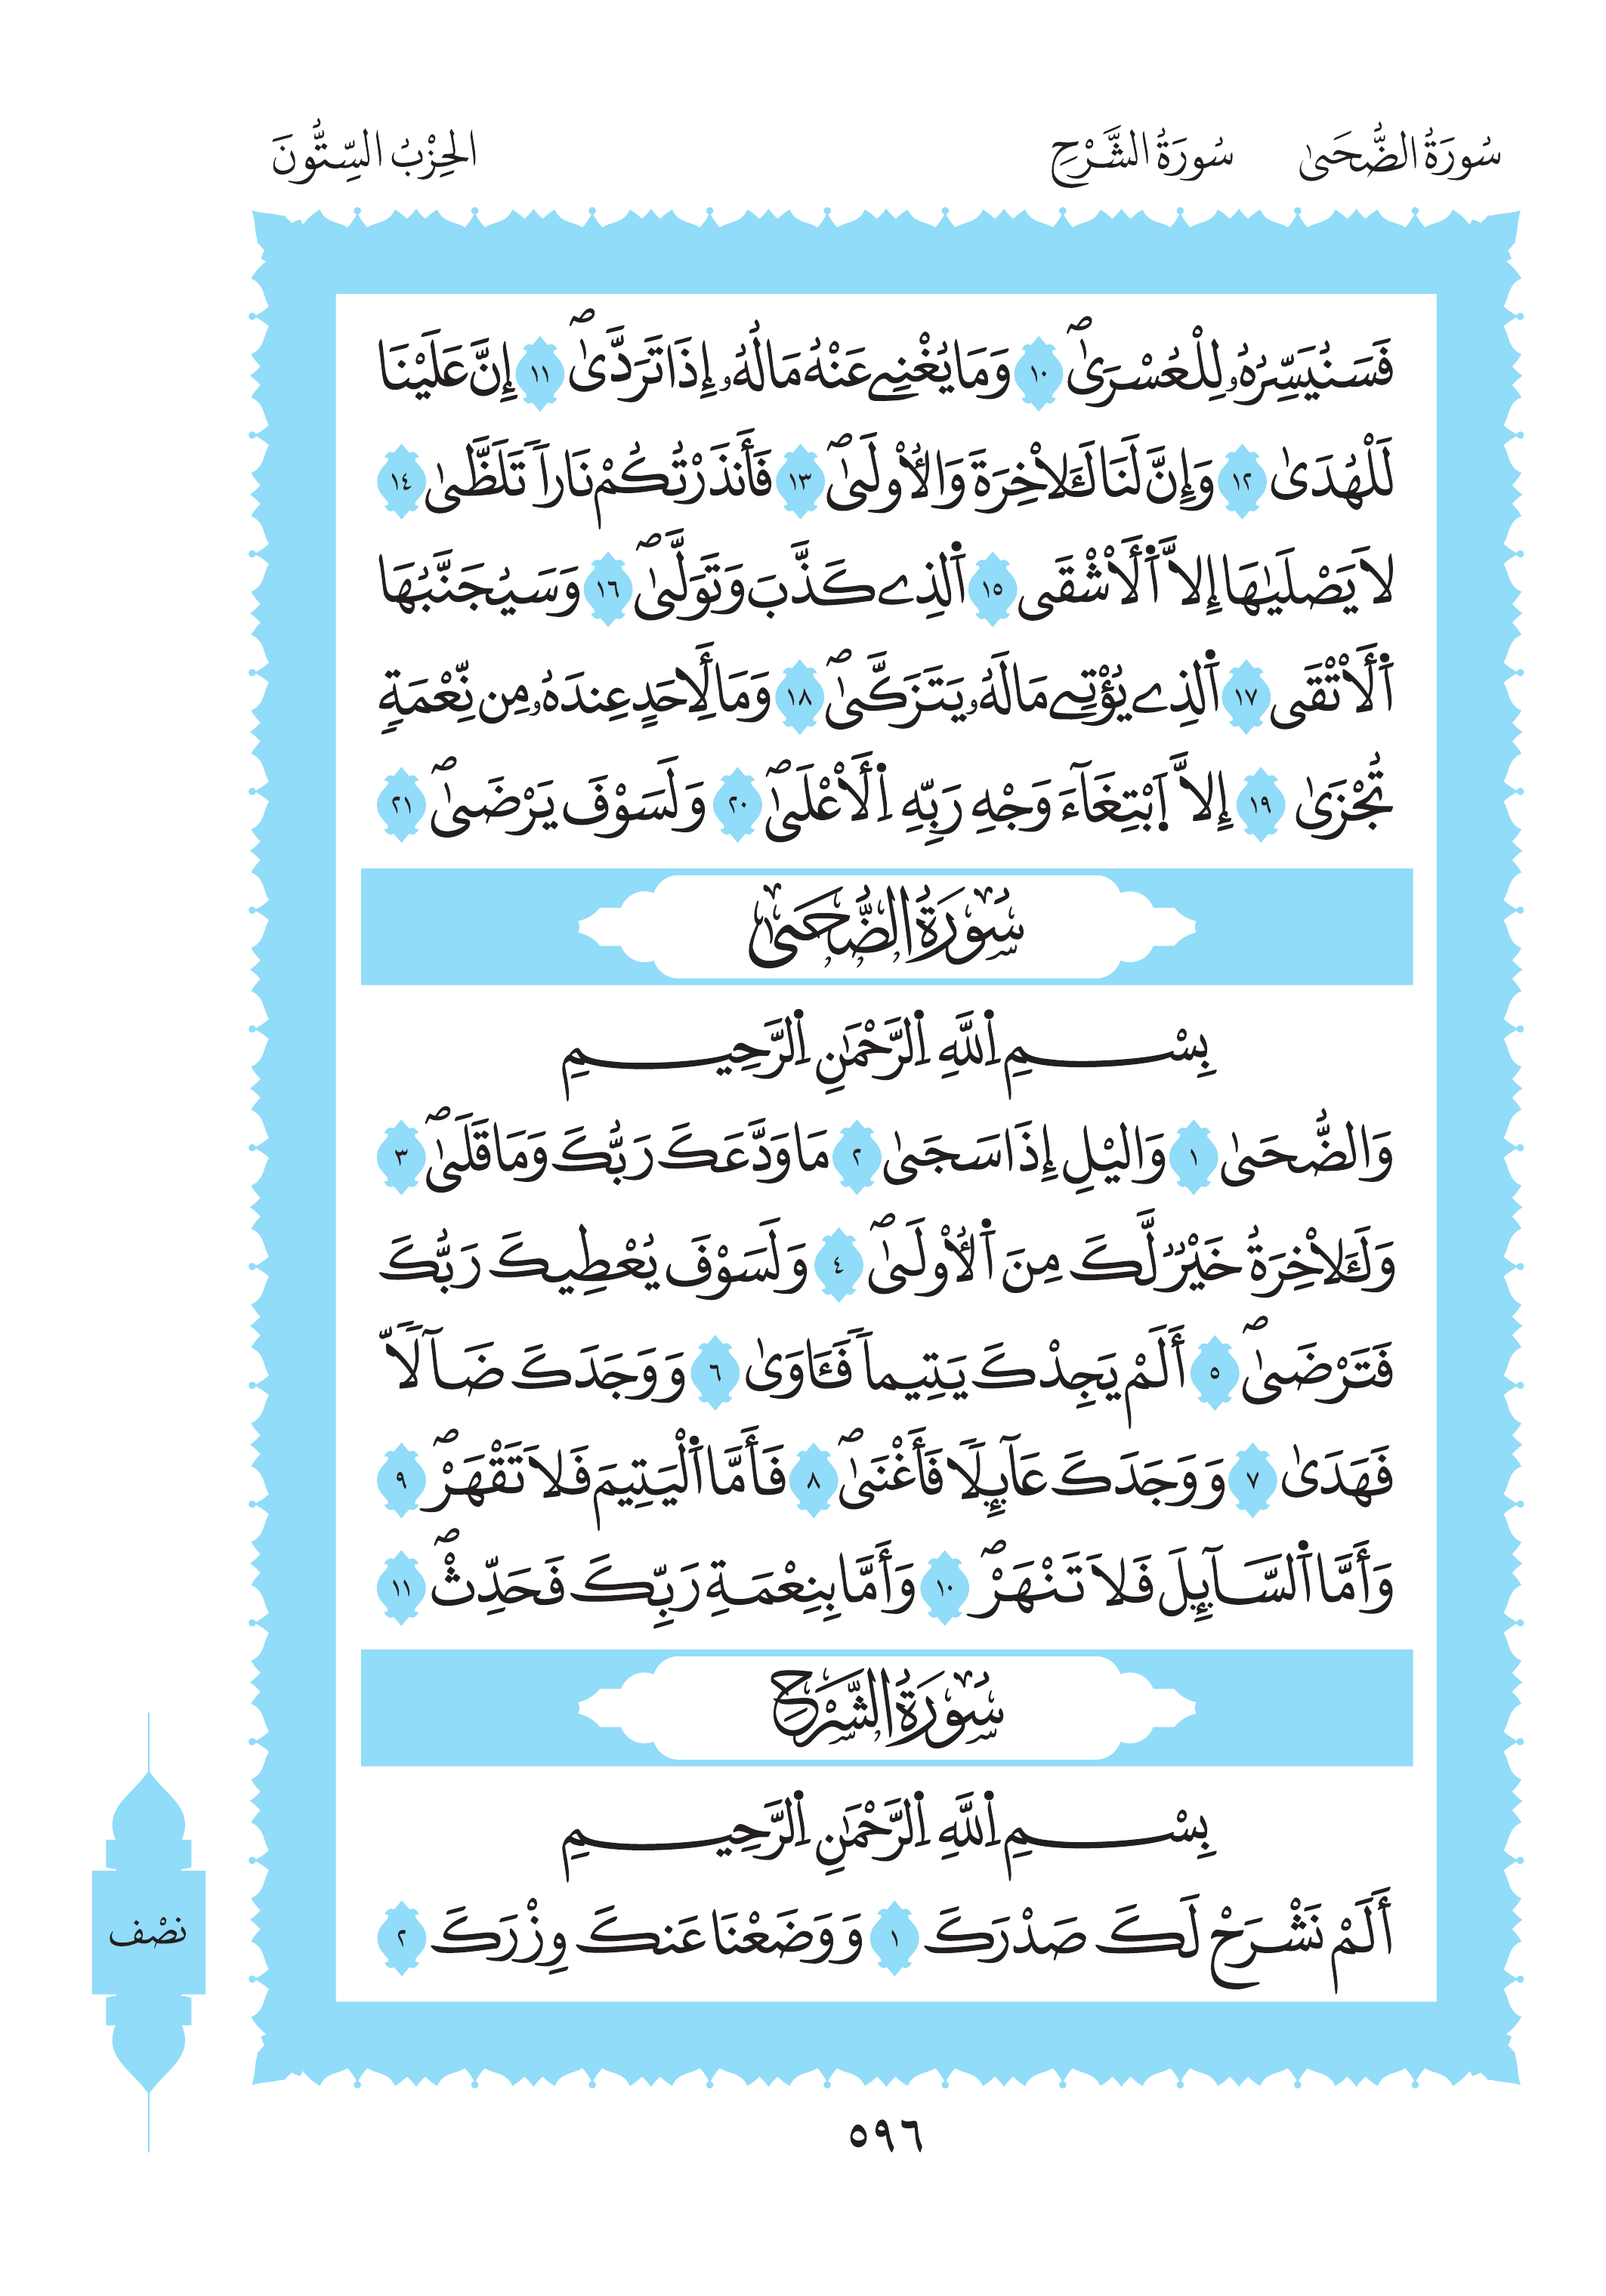 سُورَةُ الضُّحَىٰ سُورَةُ الشَّرْحِ الحِزْبُ السِّتُّونَ
فَسَنُيَسِّرُهُۥ لِلْعُسْرَىٰۖ ١٠ وَمَا يُغْنِے عَنْهُ مَالُهُۥٓ إِذَا تَرَدَّىٰٓۖ ١١ إِنَّ عَلَيْنَا
لَلْهُدَىٰ ١٢ وَإِنَّ لَنَا لَلَاخِرَةَ وَالُاولَىٰۖ ١٣ فَأَنذَرْتُكُمْ نَاراٗ تَلَظَّىٰ ١٤
لَا يَصْلَيٰهَا إِلَّا اَ۬لَاشْقَى ١٥ اَ۬لذِے كَذَّبَ وَتَوَلَّىٰۖ ١٦ وَسَيُجَنَّبُهَا
اَ۬لَاتْقَى ١٧ اَ۬لذِے يُوتِے مَالَهُۥ يَتَزَكَّىٰۖ ١٨ وَمَا لِأَحَدٍ عِندَهُۥ مِن نِّعْمَةٖ
تُجْزَىٰٓ ١٩ إِلَّا اَ۪بْتِغَآءَ وَجْهِ رَبِّهِ اِ۬لَاعْلَىٰۖ ٢٠ وَلَسَوْفَ يَرْضَىٰۖ ٢١
سُورَةُ الضُّحَىٰ
بِسْمِ اِ۬للَّهِ اِ۬لرَّحْمَٰنِ اِ۬لرَّحِيمِ
وَالضُّحَىٰ ١ وَاليْلِ إِذَا سَجَىٰ ٢ مَا وَدَّعَكَ رَبُّكَ وَمَا قَلَىٰۖ ٣
وَلَلَاخِرَةُ خَيْرٞ لَّكَ مِنَ اَ۬لُاولَىٰۖ ٤ وَلَسَوْفَ يُعْطِيكَ رَبُّكَ
فَتَرْضَىٰٓۖ ٥ أَلَمْ يَجِدْكَ يَتِيماٗ فَـَٔاوَىٰ ٦ وَوَجَدَكَ ضَآلّاٗ
فَهَدَىٰ ٧ وَوَجَدَكَ عَآئِلاٗ فَأَغْنَىٰۖ ٨ فَأَمَّا اَ۬لْيَتِيمَ فَلَا تَقْهَرْۖ ٩
وَأَمَّا اَ۬لسَّآئِلَ فَلَا تَنْهَرْۖ ١٠ وَأَمَّا بِنِعْمَةِ رَبِّكَ فَحَدِّثْۖ ١١
سُورَةُ الشَّرْحِ
بِسْمِ اِ۬للَّهِ اِ۬لرَّحْمَٰنِ اِ۬لرَّحِيمِ
أَلَمْ نَشْرَحْ لَكَ صَدْرَكَ ١ وَوَضَعْنَا عَنكَ وِزْرَكَ ٢
نِصْف
٥٩٦